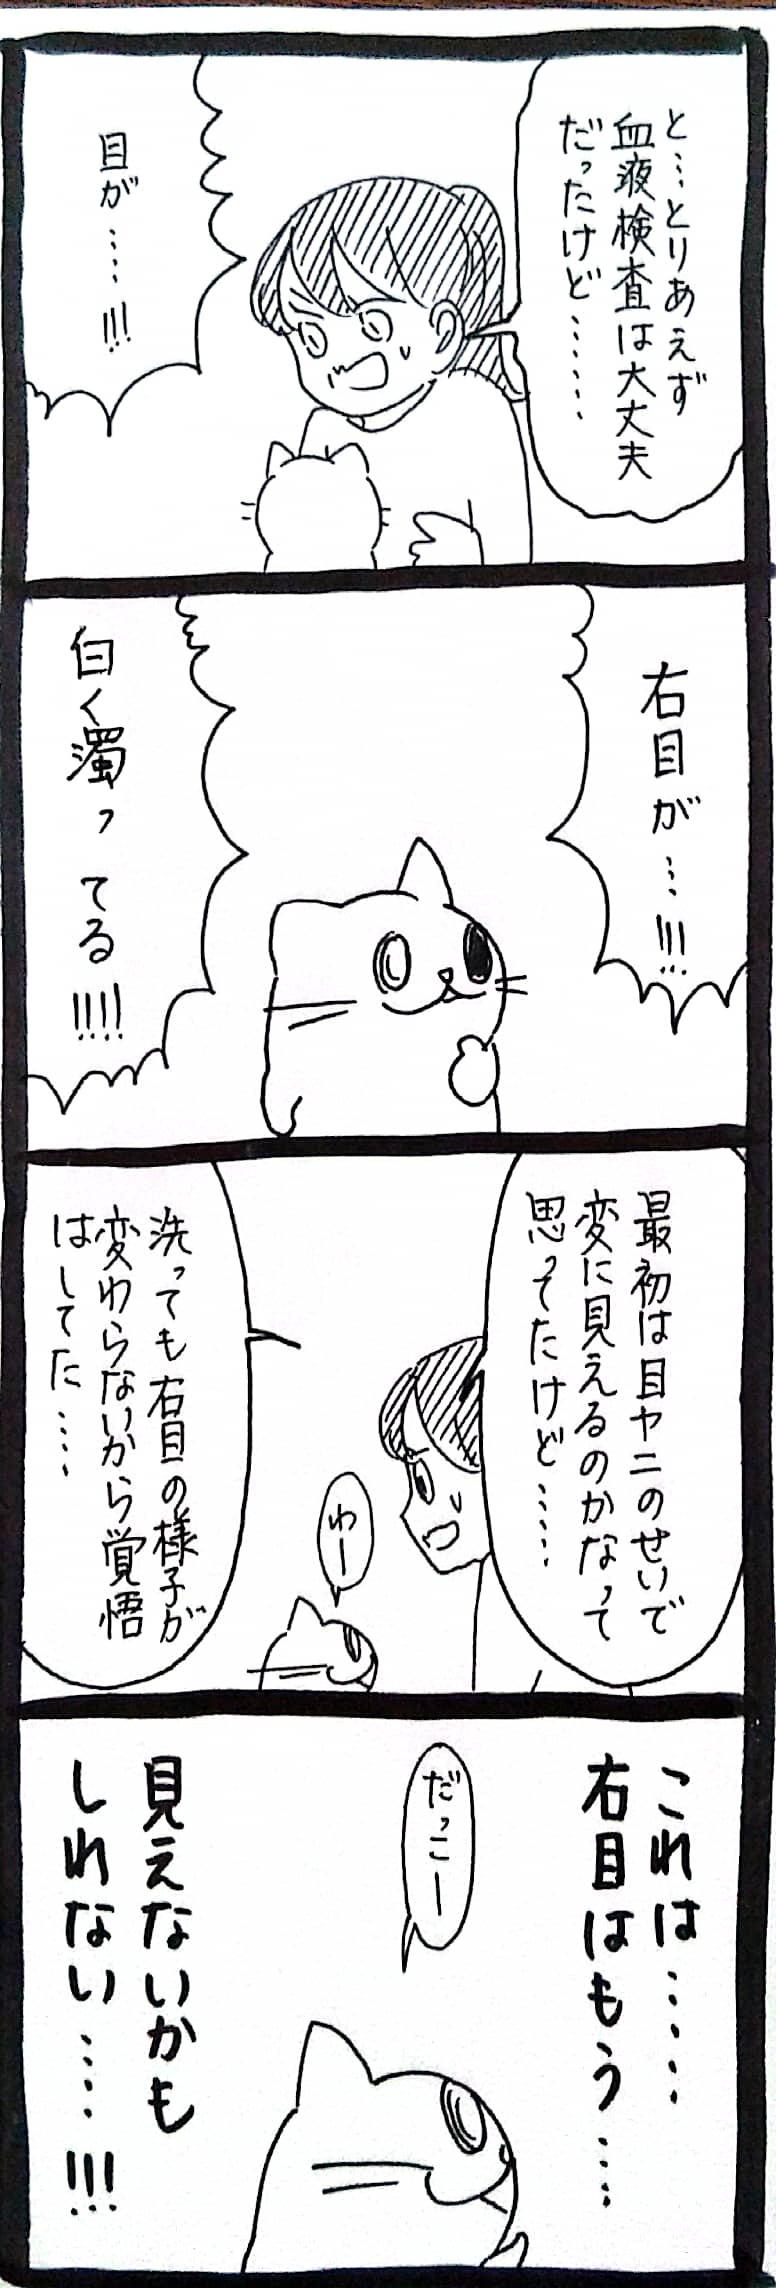 と…とりあえず
血液検査は大丈夫
だったけど……
目が……!!!
右目が…!!!
白く濁ってる!!!!
最初は目ヤニのせいで
変に見えるのかなって
思ってたけど……
洗っても右目の様子が
変わらないから覚悟
はしてた……
わー
これは……
右目はもう……
だっこー
見えないかも
しれない……!!!